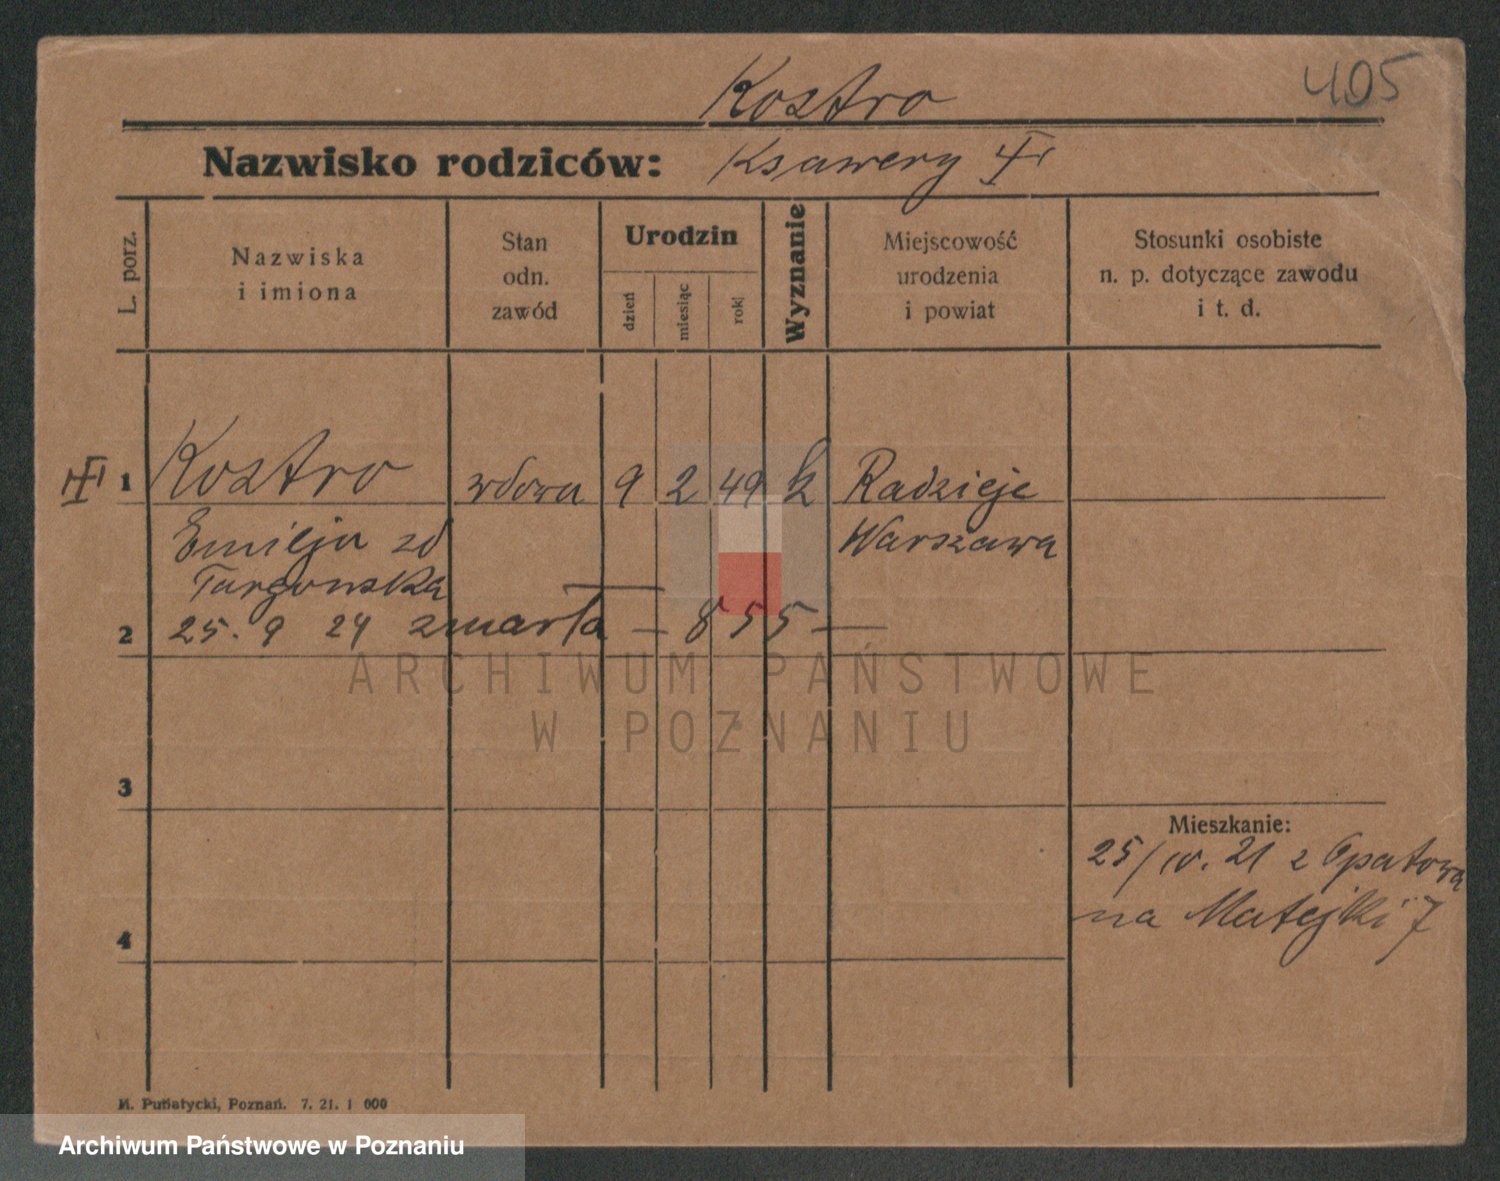 Kostro
405
Nazwisko rodziców: Ksawery
L. porz.
Nazwiska
i imiona
Stan
odn.
zawód
Urodzin
dzień
miesiąc
rok
Wyznanie
Miejscowość
urodzenia
i powiat
Stosunki osobiste
n. p. dotyczące zawodu
i t. d.
1 Kostro wdowa 9 2 49 k Radzieje
Emilja zd Warszawa
Targonska
2 25. 9 24 zmarła — 855 —
ARCHIWUM PAŃSTWOWE
W POZNANIU
3
Mieszkanie:
25/IV. 21 z Opatowa
4 na Matejki 7
M. Putiatycki, Poznań. 7. 21. 1 000
Archiwum Państwowe w Poznaniu